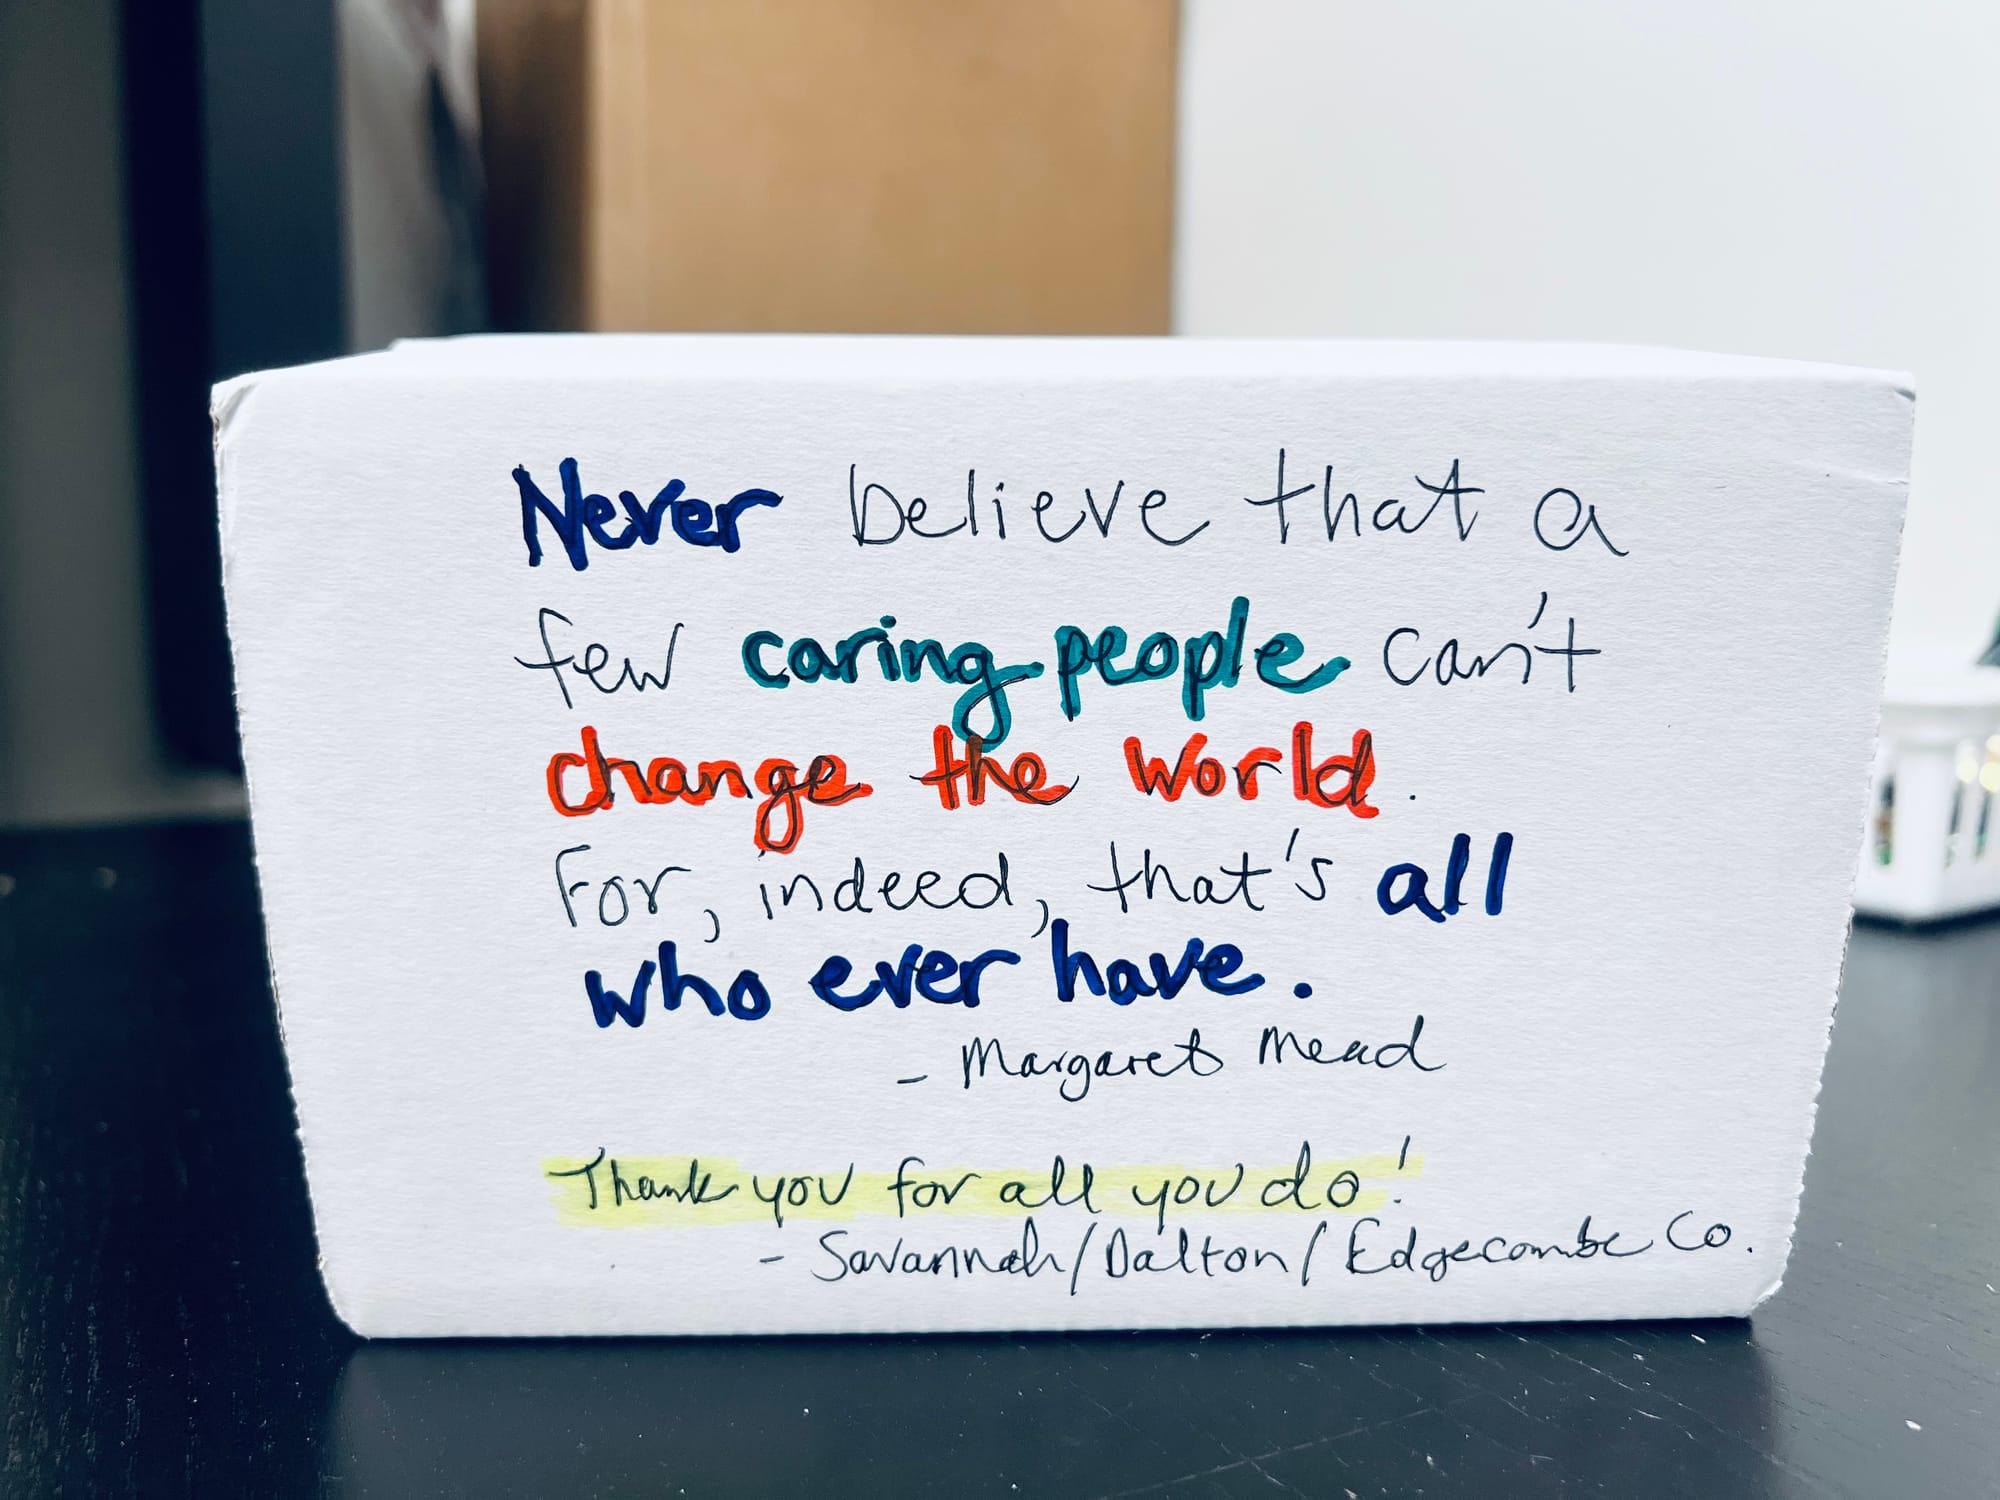 Never believe that a
few caring people can't
change the world.
For, indeed, that's all
who ever have.
- Margaret Mead
Thank you for all you do!
- Savannah/Dalton/Edgecombe Co.